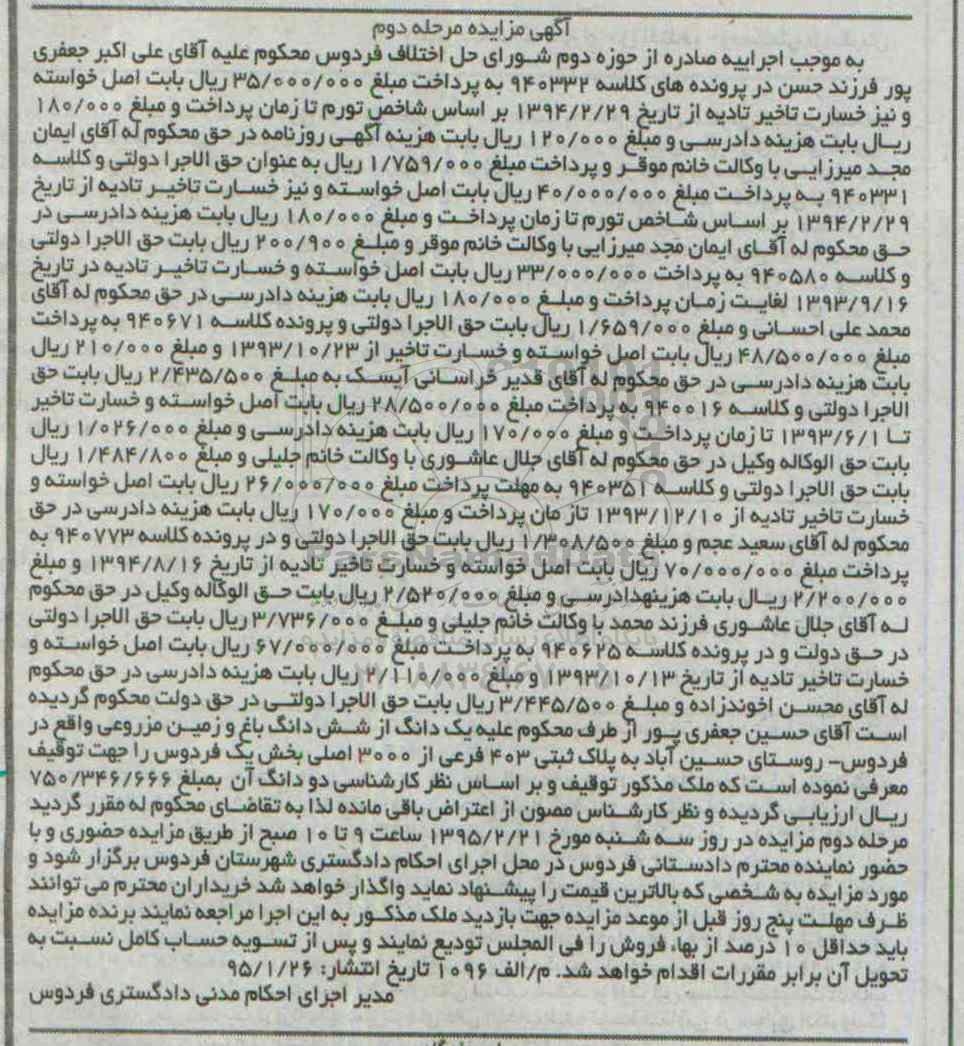 آگهی مزایده مرحله دوم
به موجب اجراییه صادره از حوزه دوم شورای حل اختلاف فردوس محکوم علیه آقای علی اکبر جعفری
پور فرزند حسن در پرونده های کلاسه ۹۴۰۳۳۲ به پرداخت مبلغ ۳۵/۰۰۰/۰۰۰ ریال بابت اصل خواسته
و نیز خسارت تاخیر تادیه از تاریخ ۱۳۹۴/۲/۲۹ بر اساس شاخص تورم تا زمان پرداخت و مبلغ ۱۸۰/۰۰۰
ریال بابت هزینه دادرسی و مبلغ ۱۲۰/۰۰۰ ریال بابت هزینه آگهی روزنامه در حق محکوم له آقای ایمان
مجد میرزایی با وکالت خانم موقر و پرداخت مبلغ ۱/۷۵۹/۰۰۰ ریال به عنوان حق الاجرا دولتی و کلاسه
۹۴۰۳۳۱ به پرداخت مبلغ ۴۰/۰۰۰/۰۰۰ ریال بابت اصل خواسته و نیز خسارت تاخیر تادیه از تاریخ
۱۳۹۴/۲/۲۹ بر اساس شاخص تورم تا زمان پرداخت و مبلغ ۱۸۰/۰۰۰ ریال بابت هزینه دادرسی در
حق محکوم له آقای ایمان مجد میرزایی با وکالت خانم موقر و مبلغ ۲۰۰/۹۰۰ ریال بابت حق الاجرا دولتی
و کلاسه ۹۴۰۵۸۰ به پرداخت ۳۳/۰۰۰/۰۰۰ ریال بابت اصل خواسته و خسارت تاخیر تادیه در تاریخ
۱۳۹۳/۹/۱۶ لغایت زمان پرداخت و مبلغ ۱۸۰/۰۰۰ ریال بابت هزینه دادرسی در حق محکوم له آقای
محمد علی احسانی و مبلغ ۱/۶۵۹/۰۰۰ ریال بابت حق الاجرا دولتی و پرونده کلاسه ۹۴۰۶۷۱ به پرداخت
مبلغ ۴۸/۵۰۰/۰۰۰ ریال بابت اصل خواسته و خسارت تاخیر از ۱۳۹۳/۱۰/۲۳ و مبلغ ۲۱۰/۰۰۰ ریال
بابت هزینه دادرسی در حق محکوم له آقای قدیر خراسانی آیسک به مبلغ ۲/۴۳۵/۵۰۰ ریال بابت حق
الاجرا دولتی و کلاسه ۹۴۰۰۱۶ به پرداخت مبلغ ۲۸/۵۰۰/۰۰۰ ریال بابت اصل خواسته و خسارت تاخیر
تا ۱۳۹۳/۶/۱ تا زمان پرداخت و مبلغ ۱۷۰/۰۰۰ ریال بابت هزینه دادرسی و مبلغ ۱/۰۲۶/۰۰۰ ریال
بابت حق الوکاله وکیل در حق محکوم له آقای جلال عاشوری با وکالت خانم جلیلی و مبلغ ۱/۴۸۴/۸۰۰ ریال
بابت حق الاجرا دولتی و کلاسه ۹۴۰۳۵۱ به مهلت پرداخت مبلغ ۲۶/۰۰۰/۰۰۰ ریال بابت اصل خواسته و
خسارت تاخیر تادیه از ۱۳۹۳/۱۲/۱۰ تاز مان پرداخت و مبلغ ۱۷۰/۰۰۰ ریال بابت هزینه دادرسی در حق
محکوم له آقای سعید عجم و مبلغ ۱/۳۰۸/۵۰۰ ریال بابت حق الاجرا دولتی و در پرونده کلاسه ۹۴۰۷۷۳ به
پرداخت مبلغ ۷۰/۰۰۰/۰۰۰ ریال بابت اصل خواسته و خسارت تاخیر تادیه از تاریخ ۱۳۹۴/۸/۱۶ و مبلغ
۲/۲۰۰/۰۰۰ ریال بابت هزینهدادرسی و مبلغ ۲/۵۲۰/۰۰۰ ریال بابت حق الوکاله وکیل در حق محکوم
له آقای جلال عاشوری فرزند محمد با وکالت خانم جلیلی و مبلغ ۳/۷۳۶/۰۰۰ ریال بابت حق الاجرا دولتی
در حق دولت و در پرونده کلاسه ۹۴۰۶۲۵ به پرداخت مبلغ ۶۷/۰۰۰/۰۰۰ ریال بابت اصل خواسته و
خسارت تاخیر تادیه از تاریخ ۱۳۹۳/۱۰/۱۳ و مبلغ ۲/۱۱۰/۰۰۰ ریال بابت هزینه دادرسی در حق محکوم
له آقای محسن اخوندزاده و مبلغ ۳/۴۴۵/۵۰۰ ریال بابت حق الاجرا دولتی در حق دولت محکوم گردیده
است آقای حسین جعفری پور از طرف محکوم علیه یک دانگ از شش دانگ باغ و زمین مزروعی واقع در
فردوس- روستای حسین آباد به پلاک ثبتی ۴۰۳ فرعی از ۳۰۰۰ اصلی بخش یک فردوس را جهت توقیف
معرفی نموده است که ملک مذکور توقیف و بر اساس نظر کارشناسی دو دانگ آن بمبلغ ۷۵۰/۳۴۶/۶۶۶
ریال ارزیابی گردیده و نظر کارشناس مصون از اعتراض باقی مانده لذا به تقاضای محکوم له مقرر گردید
مرحله دوم مزایده در روز سه شنبه مورخ ۱۳۹۵/۲/۲۱ ساعت ۹ تا ۱۰ صبح از طریق مزایده حضوری و با
حضور نماینده محترم دادستانی فردوس در محل اجرای احکام دادگستری شهرستان فردوس برگزار شود و
مورد مزایده به شخصی که بالاترین قیمت را پیشنهاد نماید واگذار خواهد شد خریداران محترم می توانند
ظرف مهلت پنج روز قبل از موعد مزایده جهت بازدید ملک مذکور به این اجرا مراجعه نمایند برنده مزایده
باید حداقل ۱۰ درصد از بهاء فروش را فی المجلس تودیع نمایند و پس از تسویه حساب کامل نسبت به
تحویل آن برابر مقررات اقدام خواهد شد. م/الف ۱۰۹۶ تاریخ انتشار: ۹۵/۱/۲۶
مدیر اجرای احکام مدنی دادگستری فردوس